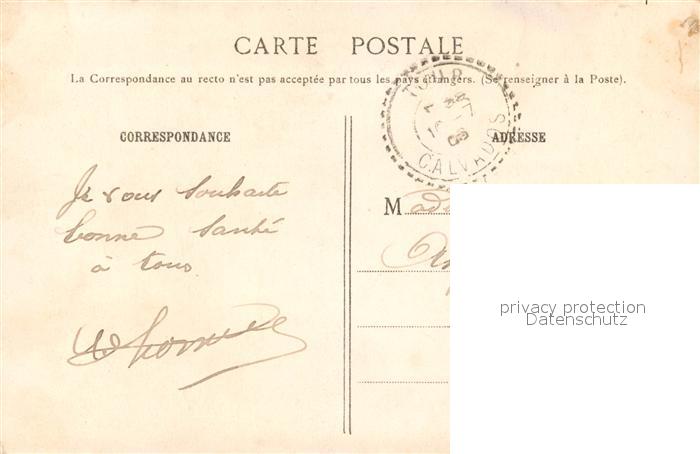 CARTE POSTALE
La Correspondance au recto n'est pas acceptée par tous les pays étrangers. (Se renseigner à la Poste).
CALVADOS
CORRESPONDANCE
ADRESSE
Je vous souhaite
bonne santé
à tous
M
privacy protection
Datenschutz